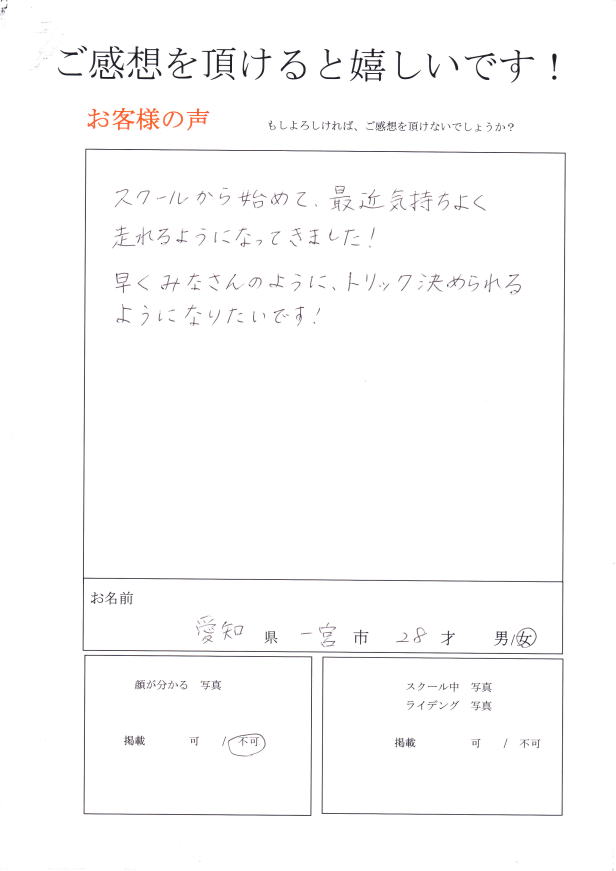 ご感想を頂けると嬉しいです！
お客様の声
もしよろしければ、ご感想を頂けないでしょうか？
スクールから始めて、最近気持ちよく
走れるようになってきました！
早くみなさんのように、トリック決められる
ようになりたいです！
お名前
愛知 県 一宮 市 28 才 男/女
顔が分かる 写真
掲載 可 / 不可
スクール中 写真
ライデング 写真
掲載 可 / 不可